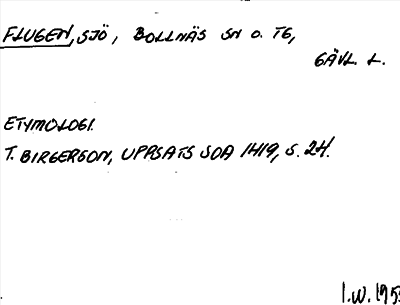 FLUGEN, SJÖ, BOLLNÄS SN O. TG,
GÄVL. L.
ETYMOLOGI.
T. BIRGERSON, UPPSATS SOA 1419, S. 24.
I.W. 195